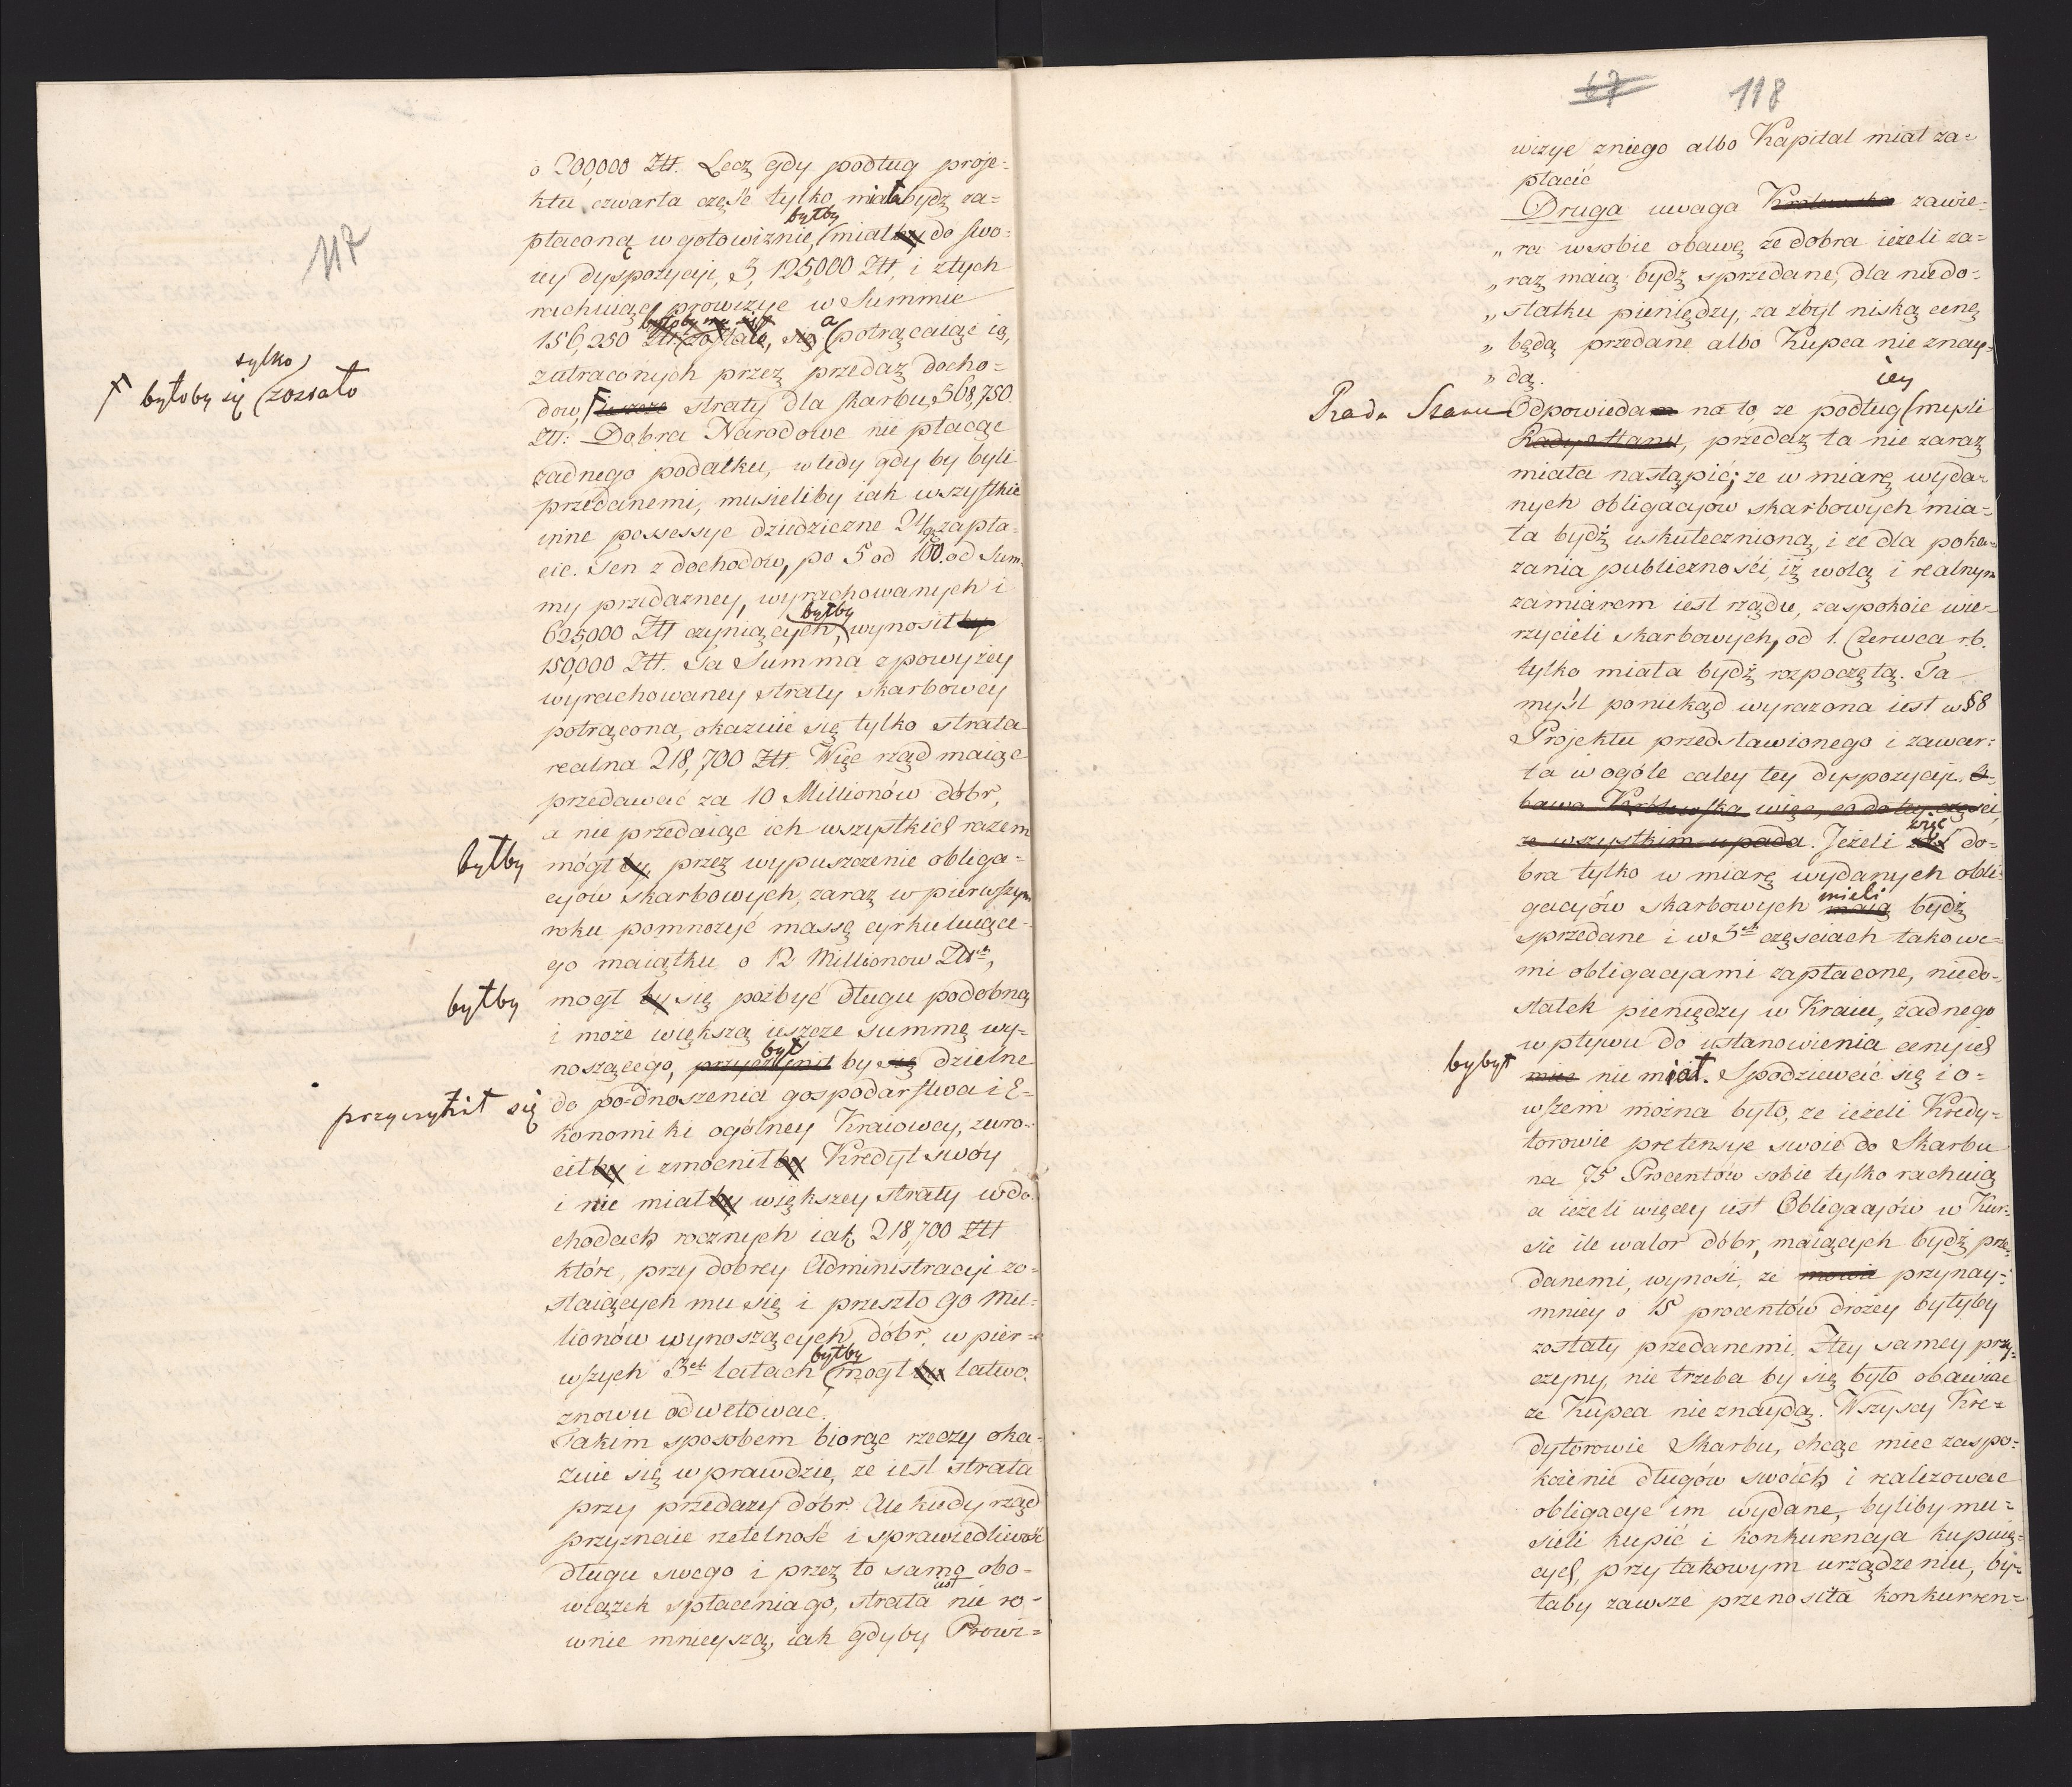 117
o 200,000 Złł. Lecz gdy podług proje-
ktu czwarta część tylko miała bydź za-
byłby
płaconą w gotowiznie, miałby do swo-
iey dyspozycyi, 3,125,000 Złł, i z tych
rachuiąc prowizye w Summie
a
156,250 Złł zostałe, się potrącaiąc ią,
zatraconych przez przedaż docho-
tylko
byłoby się zostało
dow, ieszcze straty dla skarbu 368,750.
Złł: Dobra Narodowe nie płacąc
żadnego podatku, wtedy gdy by byli
przedanemi, musieliby iak wszystkie
inne possessye dziedziczne 24/gr zapła-
cic. Ten z dochodow, po 5 od 100. od Sum-
my przedazney, wyrachowanych i
byłby
625,000 Złł czyniących, wynosił by
150,000 Złł. Ta Summa z powyżey
wyrachowaney straty skarbowey
potrącona, okazuie się tylko strata
realna 218,700 Złł. Więc rząd maiąc
przedawać za 10 Millionów dóbr,
a nie przedaiąc ich wszystkich razem
byłby mógł by, przez wypuszczenie obliga-
cyow skarbowych, zaraz w pierwszym
roku pomnożyć massę cyrkuluiące-
go maiątku o 12 Millionow Złł,
byłby mogł by się pozbyć długu podobną
i może większą ieszcze summę wy-
był
noszącego, przyczynił by się dzielne
przyczynił się do podnoszenia gospodarstwa i E-
konomiki ogólney Kraiowey, zwro-
ciłby i zmocniłby Kredyt swóy
i nie miałby większey straty w do-
chodach rocznych iak 218,700 Złł
które, przy dobrey Administracyi zo-
staiących mu się i przeszło 90 Mil-
lionów wynoszących dóbr, w pier-
byłby
wszych 3ch latach mogł by łatwo
znowu odwetować.
Takim sposobem biorąc rzeczy oka-
zuie się wprawdzie, ze iest strata
przy przedazy dóbr. Ale kiedy rząd
przyznaie rzetelność i sprawiedliwość
długu swego i przez to samo obo-
iest
wiązek spłacenia go, strata nie ro-
wnie mnieyszą, iak gdyby Prowi-
67 118
wizye z niego albo Kapitał miał za-
płacić
Druga uwaga Krolewska zawie-
„ra w sobie obawę ze dobra ieżeli za-
„raz maią bydź sprzedane, dla niedo-
„statku pieniędzy, za zbyt niską cenę
„będą przedane albo Kupca nie znay-
„dą.
iey
Rada Stanu Odpowiedam na to, ze podług mysli
Rady Stanu, przedaż ta nie zaraz
miała nastąpić; ze w miarę wyda-
nych obligacyow skarbowych mia-
ła bydź uskutecznioną, i ze dla poka-
zania publiczności, iż wolą i realnym
zamiarem iest rządu, zaspokoie wie-
rzycieli skarbowych, od 1. Czerwca r.b.
tylko miała bydź rozpoczętą. Ta
myśl poniekąd wyrazona iest w §8
Projektu przedstawionego i zawar-
ta w ogóle całey tey dyspozycyi. O-
bawa Królewska więc, co do tey części,
więc
ze wszystkim upada. Jeżeli do-
bra tylko w miarę wydanych obli-
mieli
gacyów skarbowych maią bydź
sprzedane i w 3ch częsciach takowe-
mi obligacyami zapłacone, niedo-
statek pieniędzy w Kraiu, żadnego
wpływu do ustanowienia ceny ich
bybył nie miał. Spodziewać się i o-
wszem można było, ze ieżeli Kredy-
torowie pretensye swoie do Skarbu
na 75 Procentów sobie tylko rachuią
a ieżeli więcey iest Obligacyów w Kur-
sie ile walor dóbr, maiących bydź prze-
danemi, wynosi, ze mowie przynay-
mniey o 15 procentów drożey byłyby
zostały przedanemi. Z tey samey przy-
czyny, nie trzeba by się było obawiać
ze Kupca nie znaydą. Wszyscy Kre-
dytorowie Skarbu, chcąc miec zaspo-
koienie długów swoich i realizowac
obligacye im wydane, byliby mu-
sieli kupić i konkurencya kupuią-
cych, przy takowym urządzeniu, by-
łaby zawsze przenosiła konkurren-